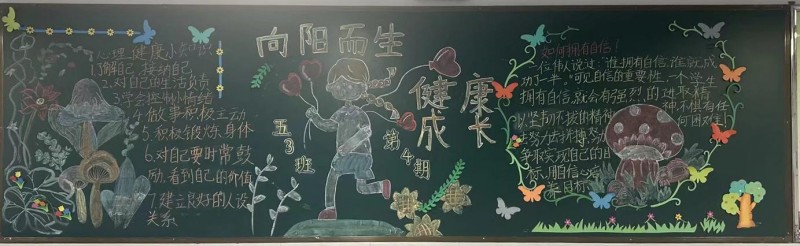 心理健康小知识
1.了解自己,接纳自己
2.对自己的生活负责
3.学会控制情绪
4.做事积极主动
5.积极锻炼身体
6.对自己要时常鼓
励,看到自己的价值
7.建立良好的人际
关系
向阳而生
健康
成长
五3班
第4期
如何拥有自信!
伟人说过:“谁拥有自信,谁就成
功了一半。”可见自信的重要性,一个学生
拥有自信,就会有强烈的进取精
神,不惧任何困难
以坚韧不拔的精神
努力去拼搏
争取实现自己的目
标,用自信心